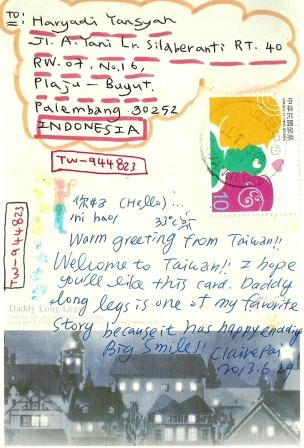 TO: Haryadi Yansyah
Jl. A. Yani Lr. Silaberanti RT. 40
RW. 07. No. 16,
Plaju - Buyut.
Palembang 30252
INDONESIA
中華民國郵票
10
TW-944823
TW-944823
你好 (Hello)...
ni hao!
33°C
Warm greeting from Taiwan!!
Welcome to Taiwan!! I hope
you'll like this card. Daddy
long legs is one of my favorite
story because it has happy ending
Big Smile!!
Claire Pai
2013.6.29
Daddy Long Leg